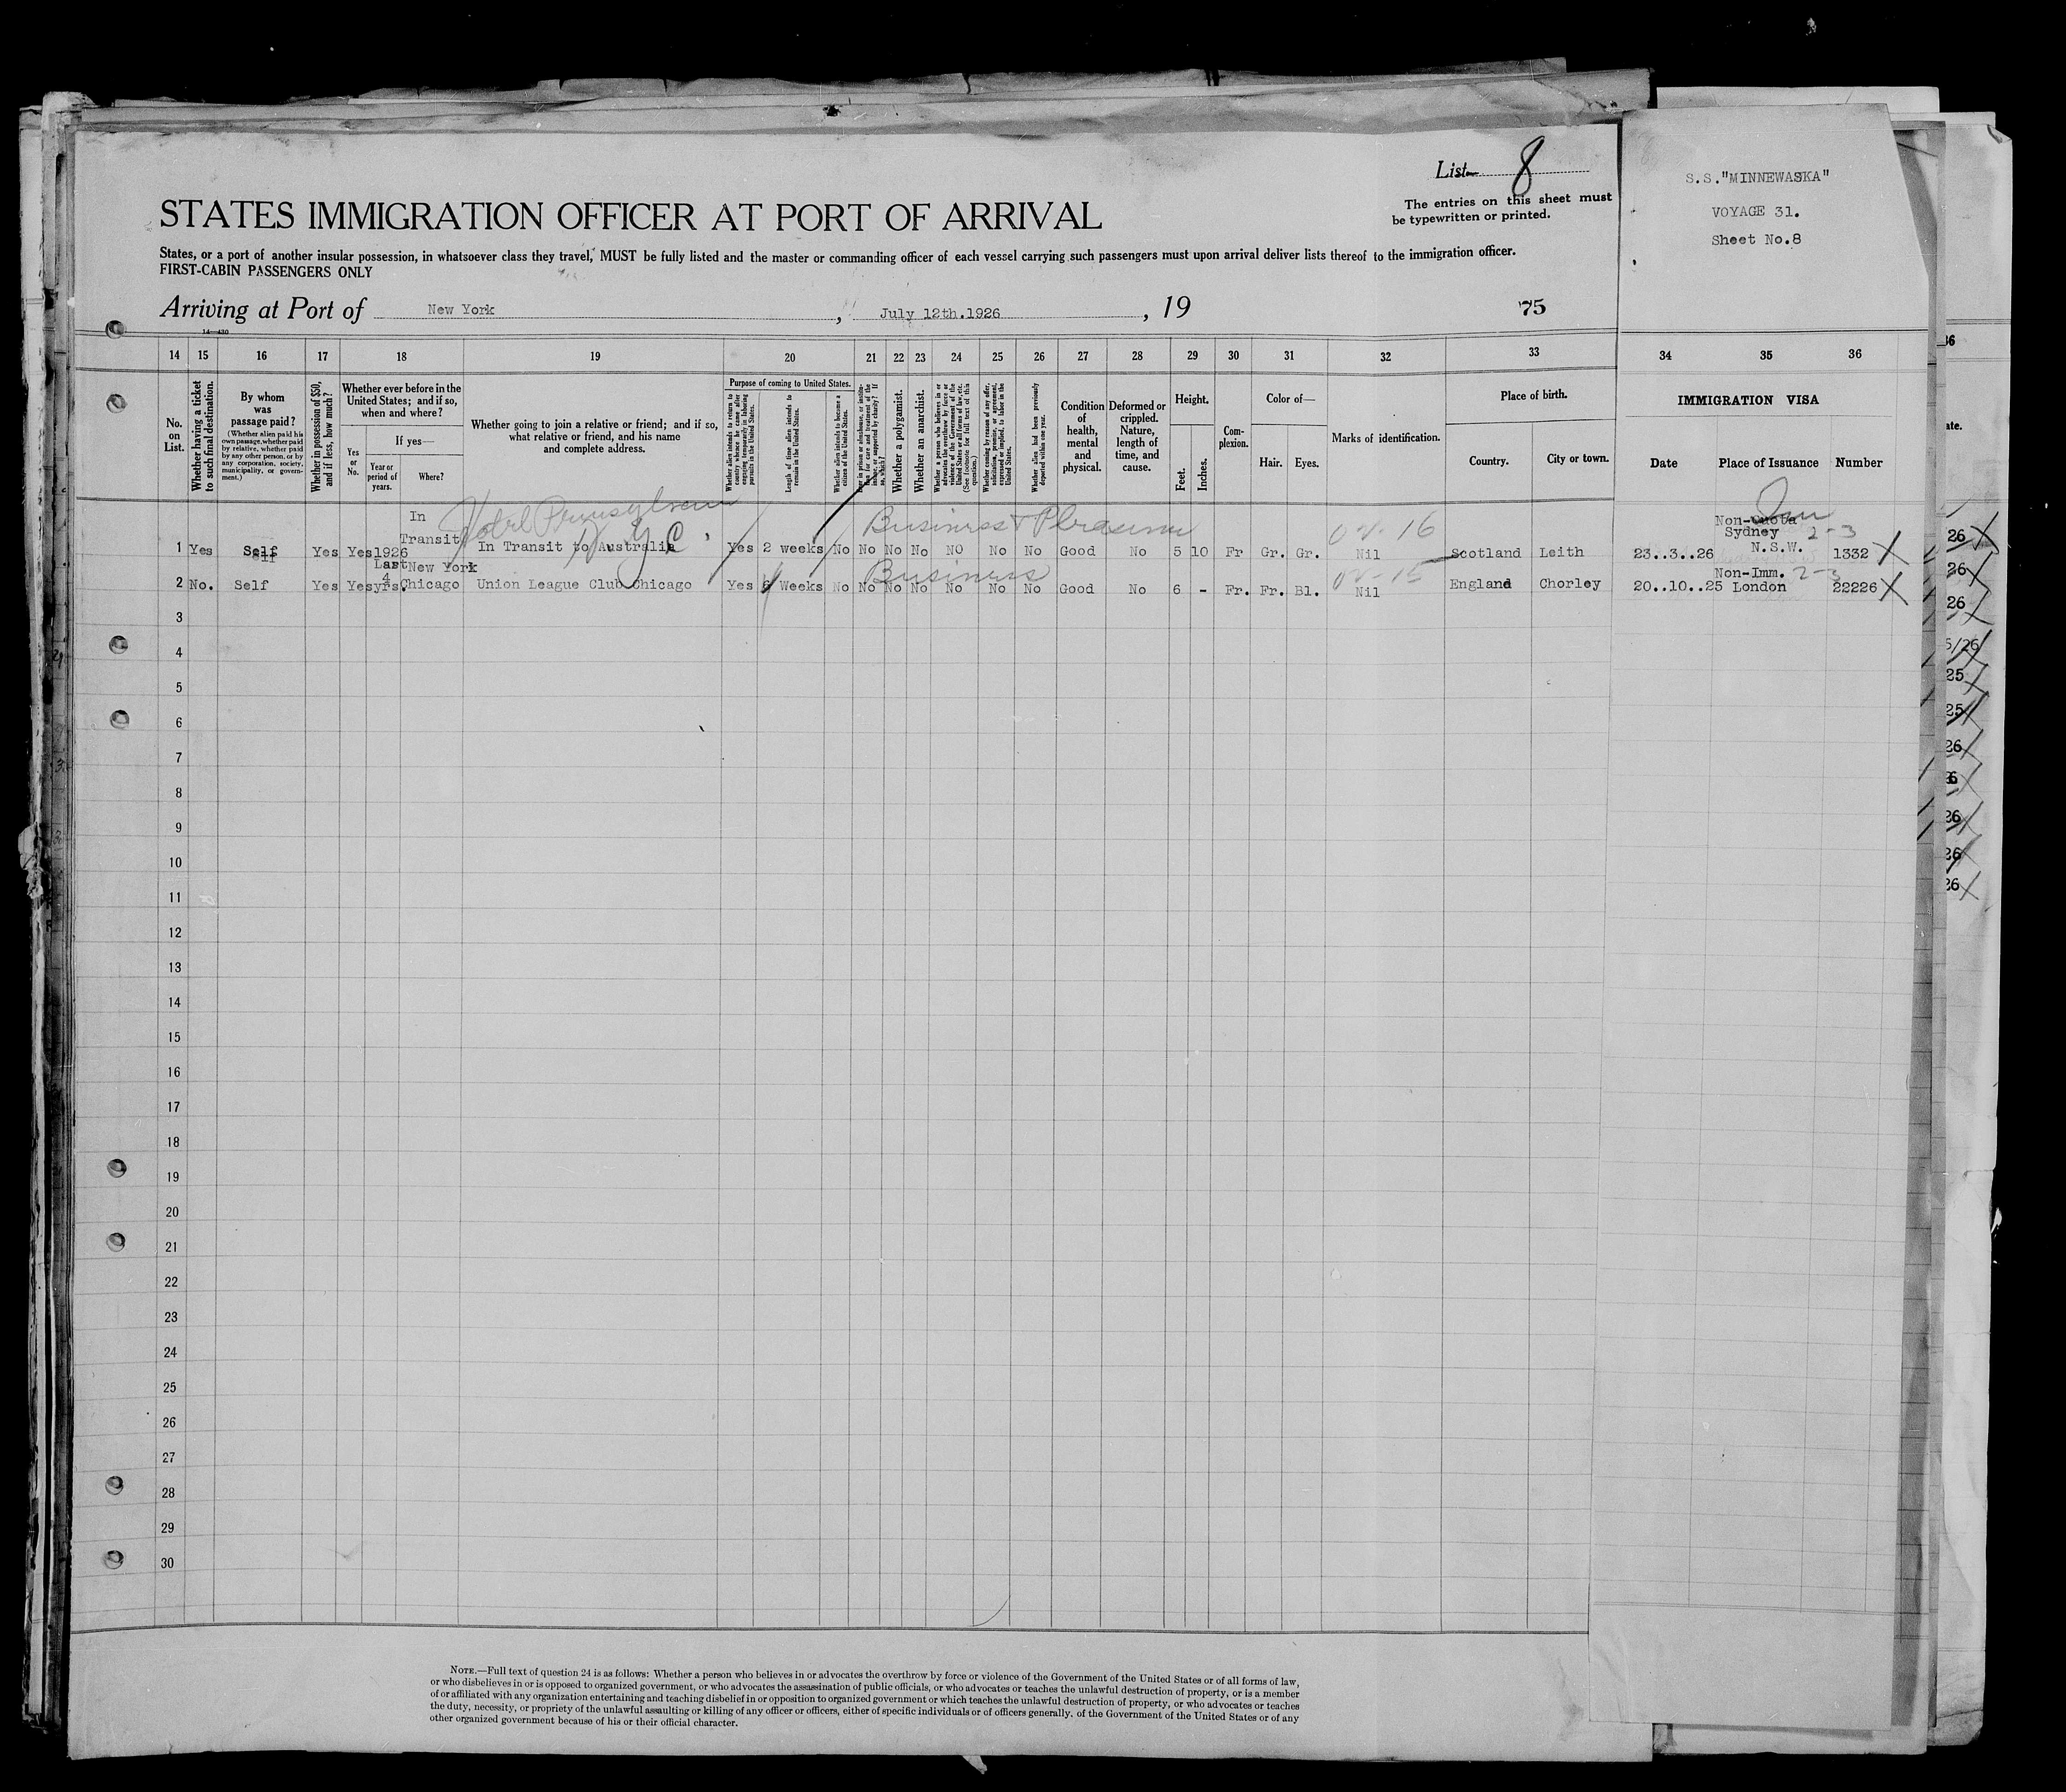 List 8
The entries on this sheet must
be typewritten or printed.
S.S."MINNEWASKA"
VOYAGE 31.
Sheet No.8
STATES IMMIGRATION OFFICER AT PORT OF ARRIVAL
States, or a port of another insular possession, in whatsoever class they travel, MUST be fully listed and the master or commanding officer of each vessel carrying such passengers must upon arrival deliver lists thereof to the immigration officer.
FIRST-CABIN PASSENGERS ONLY
Arriving at Port of New York, July 12th.1926, 19 75
14—430
14 15 16 17 18 19 20 21 22 23 24 25 26 27 28 29 30 31 32 33 34 35 36
No. on List.
Whether having a ticket to such final destination.
By whom was passage paid?
(Whether alien paid his own passage, whether paid by relative, whether paid by any other person, or by any corporation, society, municipality, or government.)
Whether in possession of $50, and if less, how much?
Whether ever before in the United States; and if so, when and where?
Yes or No.
If yes—
Year or period of years.
Where?
Whether going to join a relative or friend; and if so, what relative or friend, and his name and complete address.
Purpose of coming to United States.
Whether alien intends to return to country whence he came after engaging temporarily in laboring pursuits in the United States.
Length of time alien intends to remain in the United States.
Whether alien intends to become a citizen of the United States.
Whether a polygamist.
Whether an anarchist.
Whether a person who believes in or advocates the overthrow by force or violence of the Government of the United States or all forms of law, etc. (See footnote for full text of this question.)
Whether coming by reason of any offer, solicitation, promise, or agreement, expressed or implied, to labor in the United States.
Whether alien had been previously deported within one year.
Condition of health, mental and physical.
Deformed or crippled. Nature, length of time, and cause.
Height.
Feet.
Inches.
Complexion.
Color of—
Hair.
Eyes.
Marks of identification.
Place of birth.
Country.
City or town.
IMMIGRATION VISA
Date
Place of Issuance
Number
Hotel Pennsylvania
N. Y. C.
Business & Pleasure
1 Yes Self Yes Yes 1926 In Transit In Transit to Australia Yes 2 weeks No No No No NO No No Good No 5 10 Fr Gr. Gr. Nil Scotland Leith 23..3..26 Non-Quota Sydney N.S.W. 2-3 1332
Business
2 No. Self Yes Yes Last 4 yrs. New York Chicago Union League Club Chicago Yes 6 Weeks No No No No No No No Good No 6 - Fr. Fr. Bl. Nil England Chorley 20..10..25 Non-Imm. London 2-3 22226
3
4
5
6
7
8
9
10
11
12
13
14
15
16
17
18
19
20
21
22
23
24
25
26
27
28
29
30
NOTE.—Full text of question 24 is as follows: Whether a person who believes in or advocates the overthrow by force or violence of the Government of the United States or of all forms of law,
or who disbelieves in or is opposed to organized government, or who advocates the assassination of public officials, or who advocates or teaches the unlawful destruction of property, or is a member
of or affiliated with any organization entertaining and teaching disbelief in or opposition to organized government or which teaches the unlawful destruction of property, or who advocates or teaches
the duty, necessity, or propriety of the unlawful assaulting or killing of any officer or officers, either of specific individuals or of officers generally, of the Government of the United States or of any
other organized government because of his or their official character.